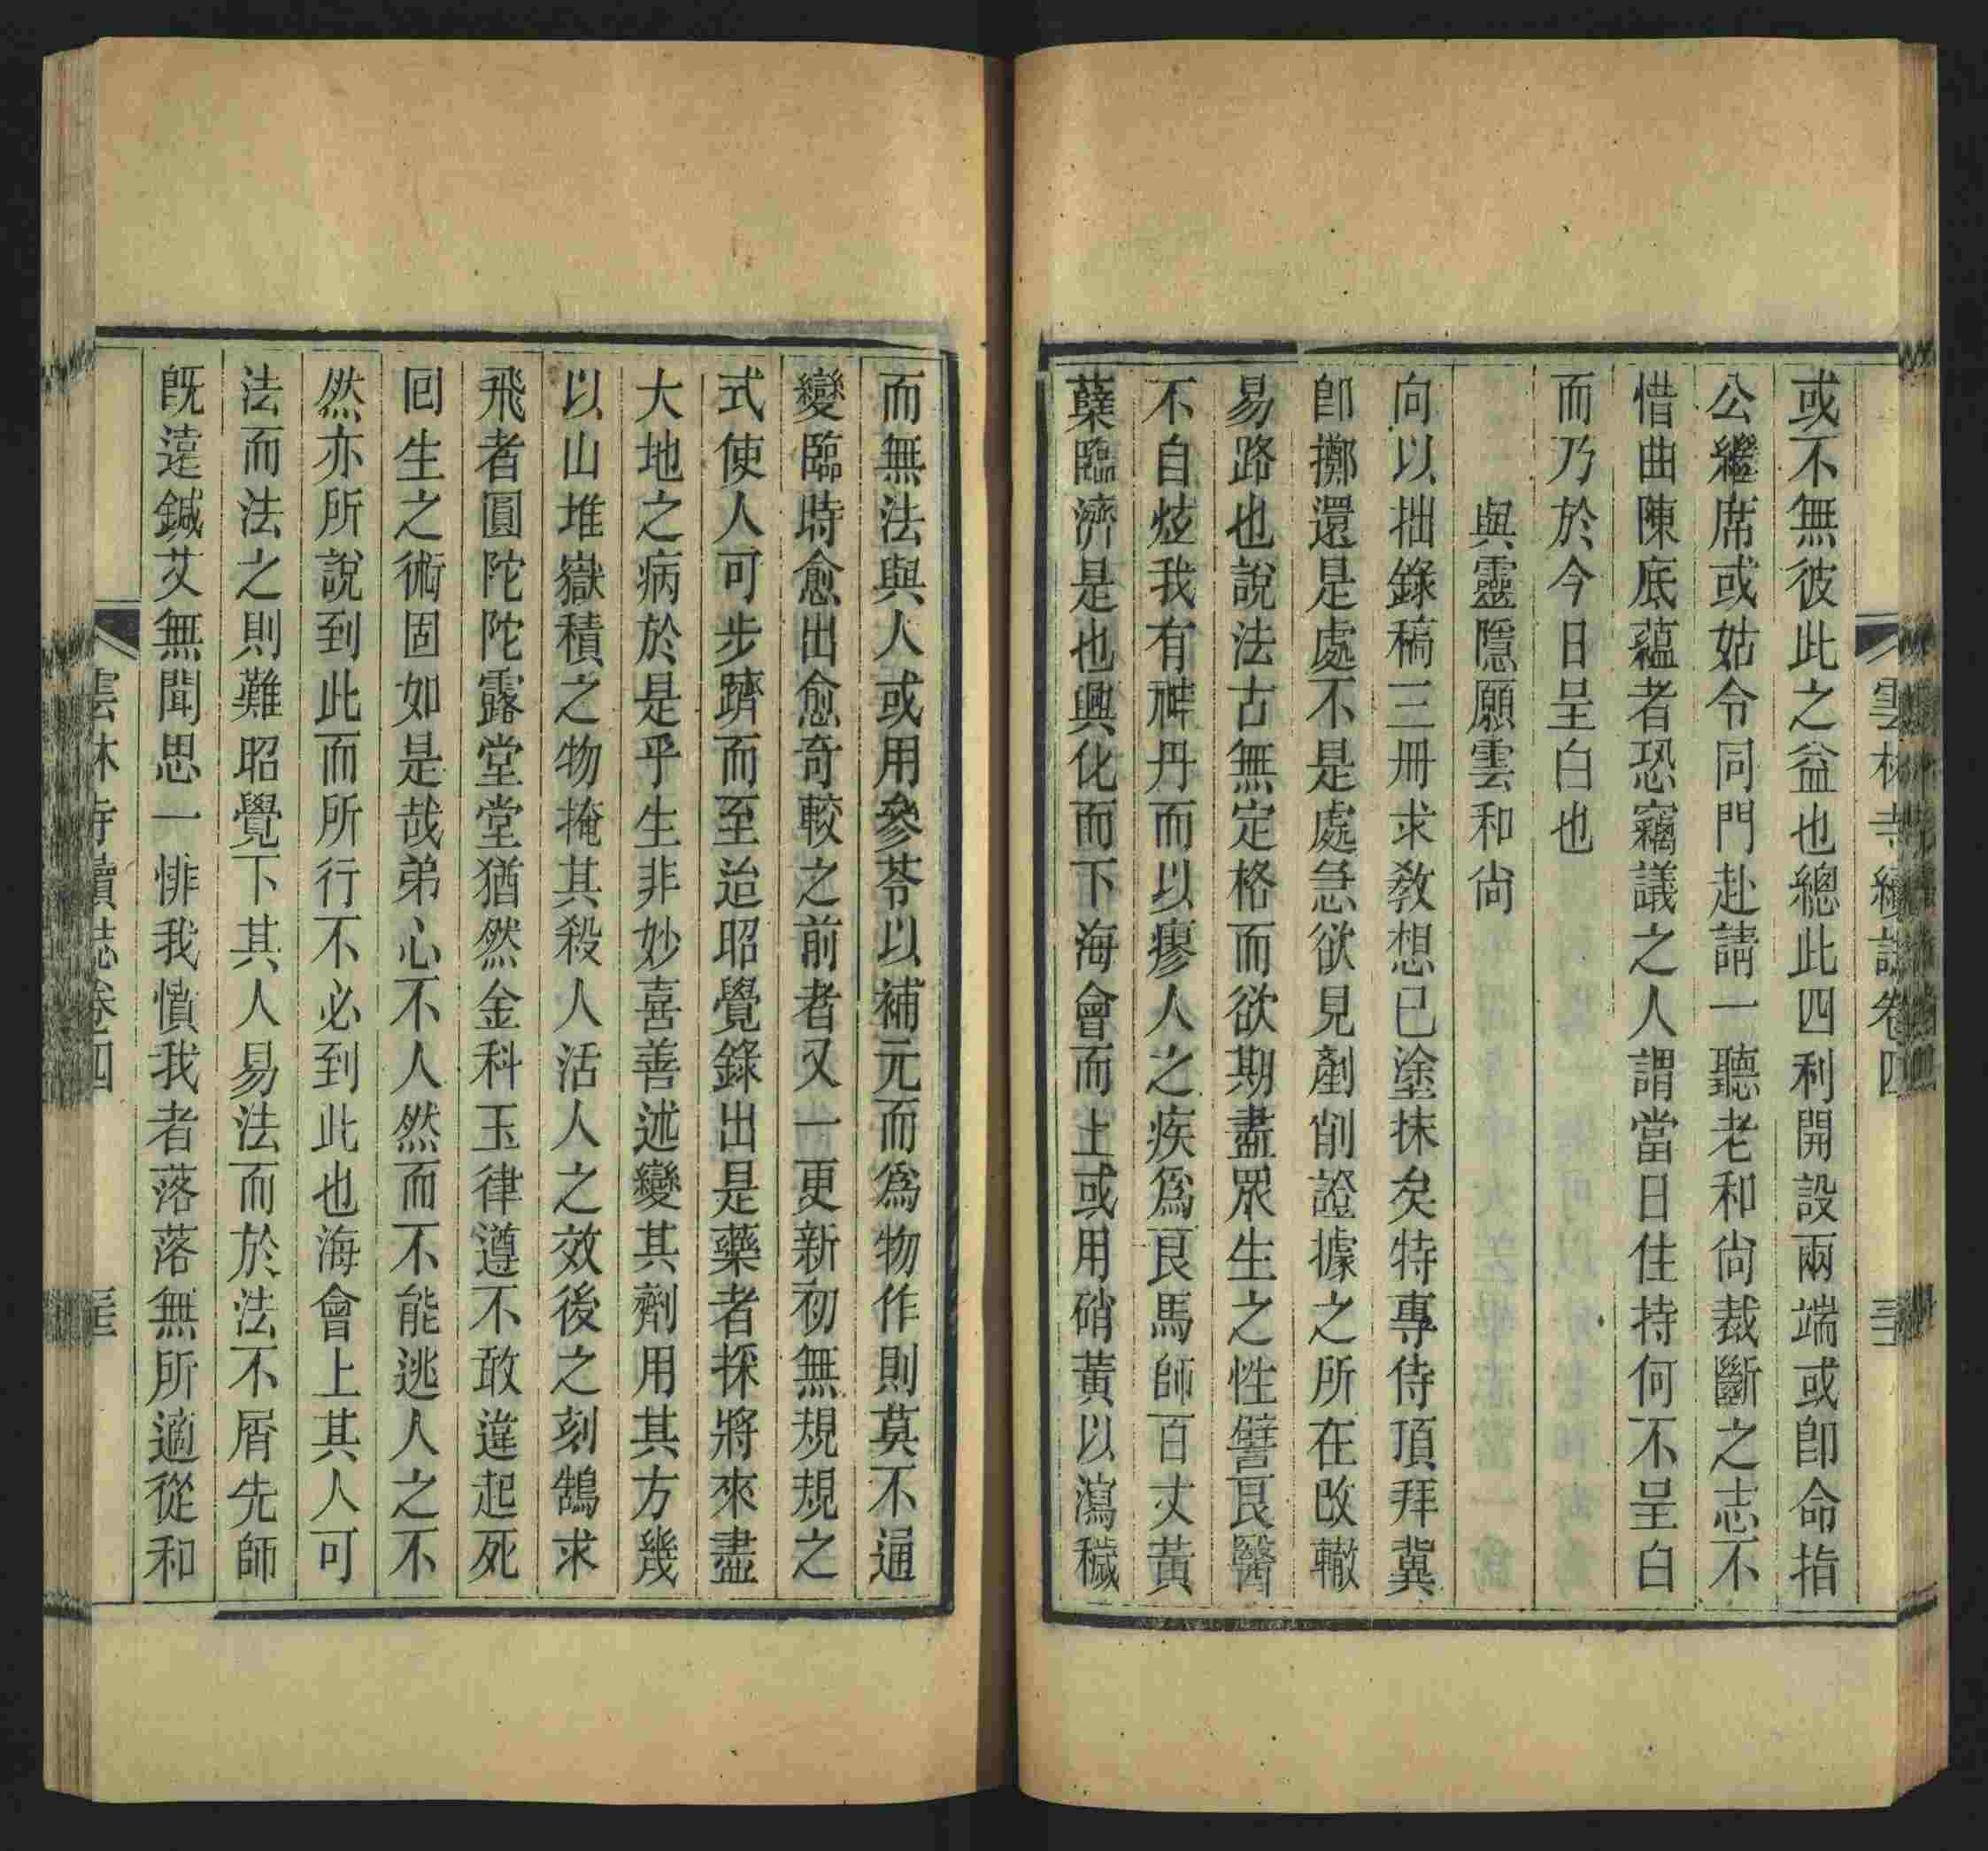 雲林寺續誌卷四
或不無彼此之益也總此四利開設兩端或卽命指
公繼席或姑令同門赴請一聽老和尙裁斷之志不
惜曲陳底蘊者恐竊議之人謂當日住持何不呈白
而乃於今日呈白也
與靈隱願雲和尙
向以拙錄稿三冊求敎想已塗抹矣特專侍頂拜冀
卽擲還是處不是處急欲見剷削證據之所在改轍
易路也說法古無定格而欲期盡眾生之性譬良醫
不自炫我有神丹而以瘳人之疾爲良馬師百丈黃
蘖臨濟是也興化而下海會而上或用硝黃以瀉穢
而無法與人或用參苓以補元而爲物作則莫不通
變臨時愈出愈奇較之前者又一更新初無規規之
式使人可步躋而至迨昭覺錄出是藥者採將來盡
大地之病於是乎生非妙喜善述變其劑用其方幾
以山堆嶽積之物掩其殺人活人之效後之刻鵠求
飛者圓陀陀露堂堂猶然金科玉律遵不敢違起死
回生之術固如是哉弟心不人然而不能逃人之不
然亦所說到此而所行不必到此也海會上其人可
法而法之則難昭覺下其人易法而於法不屑先師
旣遠鍼艾無聞思一悱我憤我者落落無所適從和
雲林寺續誌卷四